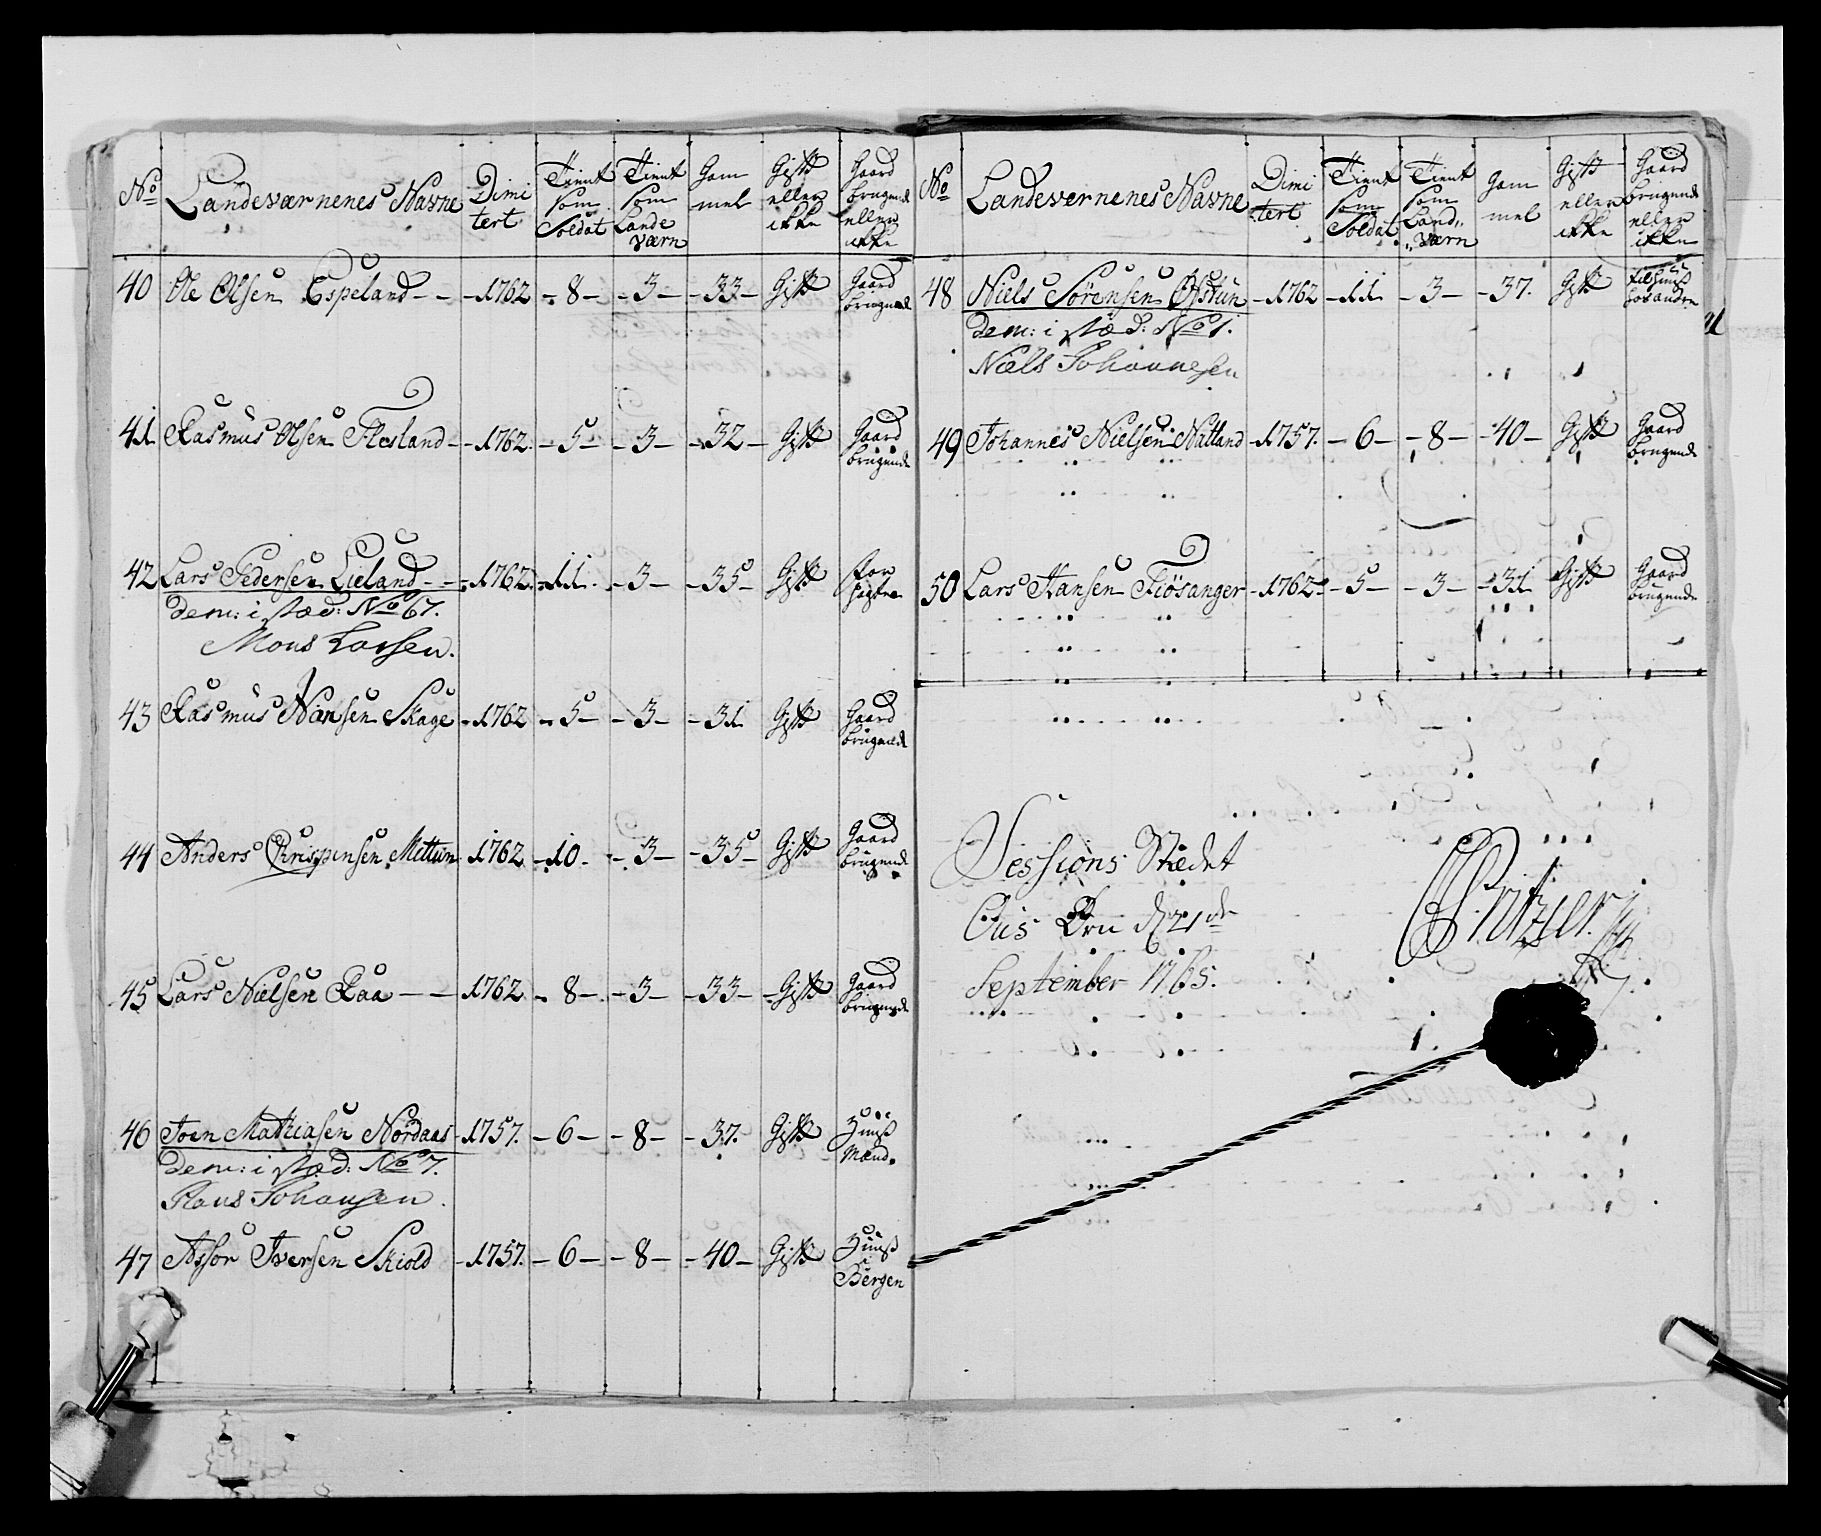 No Landeværnenes Navne Dimi tert Tient som Soldat Tient som Lande værn Gam mel Gift eller ikke Gaard brugende eller ikke
40 Ole Olsen Espeland - - 1762 - 8 - - 3 - - 33 - Gift Gaard brugende
41 Rasmus Olsen Flesland - 1762 - 5 - - 3 - - 32 - Gift Gaard brugende
42 Lars Pedersen Lieland - - 1762 - 11 - 3 - - 35 - Gift
Dem: i stæd: No 67.
Mons Larsen.
43 Rasmus Hansen Skage - 1762 - 5 - - 3 - - 31 Gift Gaard brugende
44 Anders Chrispinsen Mittun 1762 - 10 - - 3 - - 35 - Gift Gaard brugende
45 Lars Nielsen Raa - - 1762 - 8 - - 3 - - 33 - Gift Gaard brugende
46 Joen Mathiasen Nordaas - 1757. - 6 - - 8 - - 37. Gift Huus Mand.
Dem: i stæd: No 7.
Hans Johansen.
47 Assor Iversen Skiold - 1757. - 6 - - 8 - - 40 - Gift Huus i Bergen
No Landevernenes Navne Dimi tert Tient som Soldat Tient som Land, værn Gam mel Gift eller ikke Gaard brugende eller ikke
48 Niels Sørensen Øfstun - 1762 - 11 - 3 - - 37. Gift til Huus hos andre
Dem: i stæd: No 1.
Niels Johannesen
49 Johannes Nielsen Natland - 1757. - 6 - - 8 - - 40 - Gift Gaard brugende
50 Lars Hansen Fiøsanger - 1762 - 5 - - 3 - - 31 Gift Gaard brugende
Sessions Stædet
Ous Øen d 21de
September 1765.